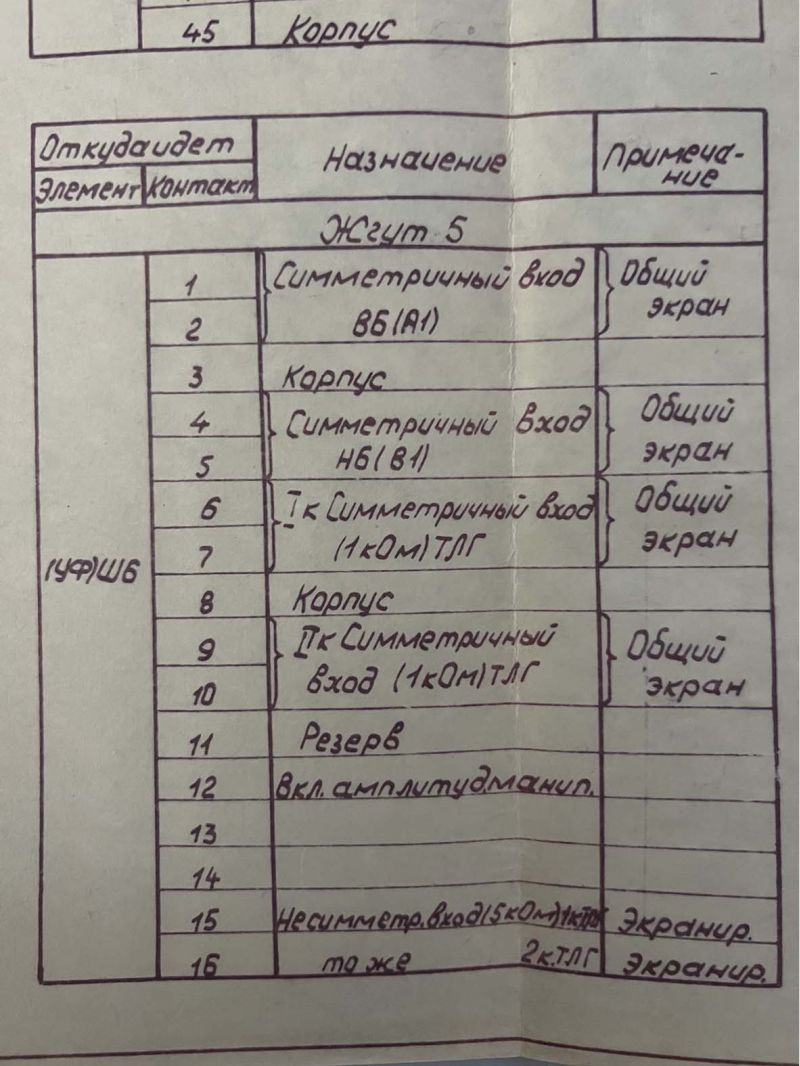 45 Корпус
Откуда идет Назначение Примеча-
ние
Элемент Контакт
Жгут 5
1 Симметричный вход Общий
экран
2 ВБ(А1)
3 Корпус
4 Симметричный вход Общий
5 НБ(В1) экран
6 Iк Симметричный вход Общий
7 (1кОм)ТЛГ экран
(УФ)Ш6
8 Корпус
9 IIк Симметричный Общий
10 вход (1кОм)ТЛГ экран
11 Резерв
12 Вкл. амплитуд.манип.
13
14
15 Несимметр.вход(5кОм)1кТЛГ Экранир.
16 то же 2к.ТЛГ Экранир.